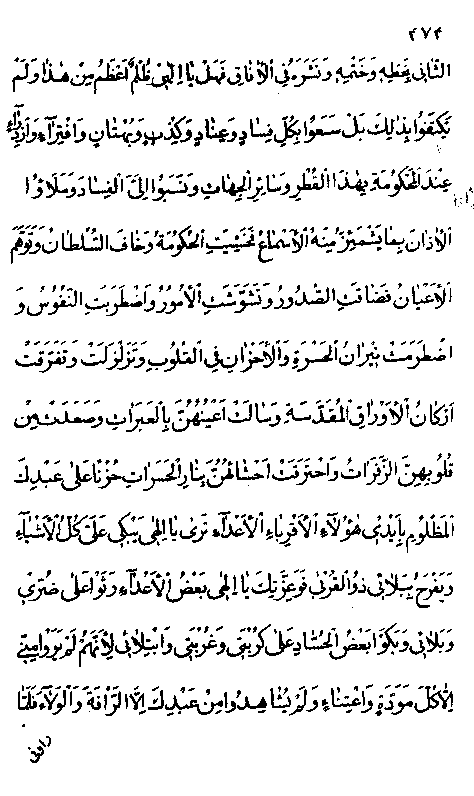 ٢٧٤
الثّانی بِخَطِّهِ وَخَتْمِهِ وَنَشَرَهُ فِی الْآفَاقِ فَهَلْ یَا اِلٰهِی ظُلْمٌ اَعْظَمُ مِنْ هٰذَا وَلَمْ
یَکْتَفُوا بِذٰلِکَ بَلْ سَعَوْا بِکُلِّ فَسَادٍ وَعِنَادٍ وَکِذْبٍ وَبُهْتَانٍ وَافْتِرَاءٍ وَازْدِرَاءٍ
عِنْدَ الْحُکُومَةِ بِهٰذَا الْقُطْرِ وَسَائِرِ الْجِهَاتِ وَنَسَبُوا اِلَیَّ الْفَسَادَ وَمَلَاؤُا
الْآذَانَ بِمَا یَشْمَئِزُّ مِنْهُ الْاَسْمَاعُ فَخَشِیَتِ الْحُکُومَةُ وَخَافَ السُّلْطَانُ وَتَوَهَّمَ
الْاَعْیَانُ فَضَاقَتِ الصُّدُورُ وَتَشَوَّشَتِ الْاُمُورُ وَاضْطَرَبَتِ النُّفُوسُ وَ
اضْطَرَمَتْ نِیْرَانُ الْحَسْرَةِ وَالْاَحْزَانِ فِی الْقُلُوبِ وَتَزَلْزَلَتْ وَتَفَرَّقَتْ
اَرْکَانُ الْاَوْرَاقِ الْمُقَدَّسَةِ وَسَالَتْ اَعْیُنُهُنَّ بِالْعَبَرَاتِ وَصَعَدَتْ مِنْ
قُلُوبِهِنَّ الزَّفَرَاتُ وَاحْتَرَقَتْ اَحْشَائُهُنَّ بِنَارِ الْحَسَرَاتِ حُزْنًا عَلٰی عَبْدِکَ
الْمَظْلُومِ بِاَیْدِی هٰؤُلَآءِ الْاَقْرِبَاءِ الْاَعْدَآءِ تَرٰی یَا اِلٰهِی یَبْکِی عَلَیَّ کُلُّ الْاَشْیَآءِ
وَیَفْرَحُ بِبَلَائِی ذَوُو الْقُرْبٰی فَوَعِزَّتِکَ یَا اِلٰهِی بَعْضُ الْاَعْدَآءِ رَثَوْا عَلٰی ضُرِّی
وَبَلَائِی وَبَکَوْا بَعْضُ الْحُسَّادِ عَلٰی کُرْبَتِی وَغُرْبَتِی وَابْتِلَائِی لِاَنَّهُمْ لَمْ یَرَوْا مِنِّی
اِلَّا کُلَّ مَوَدَّةٍ وَاعْتِنَاءٍ وَلَمْ یُشَاهِدُوا مِنْ عَبْدِکَ اِلَّا الرَّأْفَةَ وَالْوَلَآءَ فَلَمَّا
رَاَوْنِی